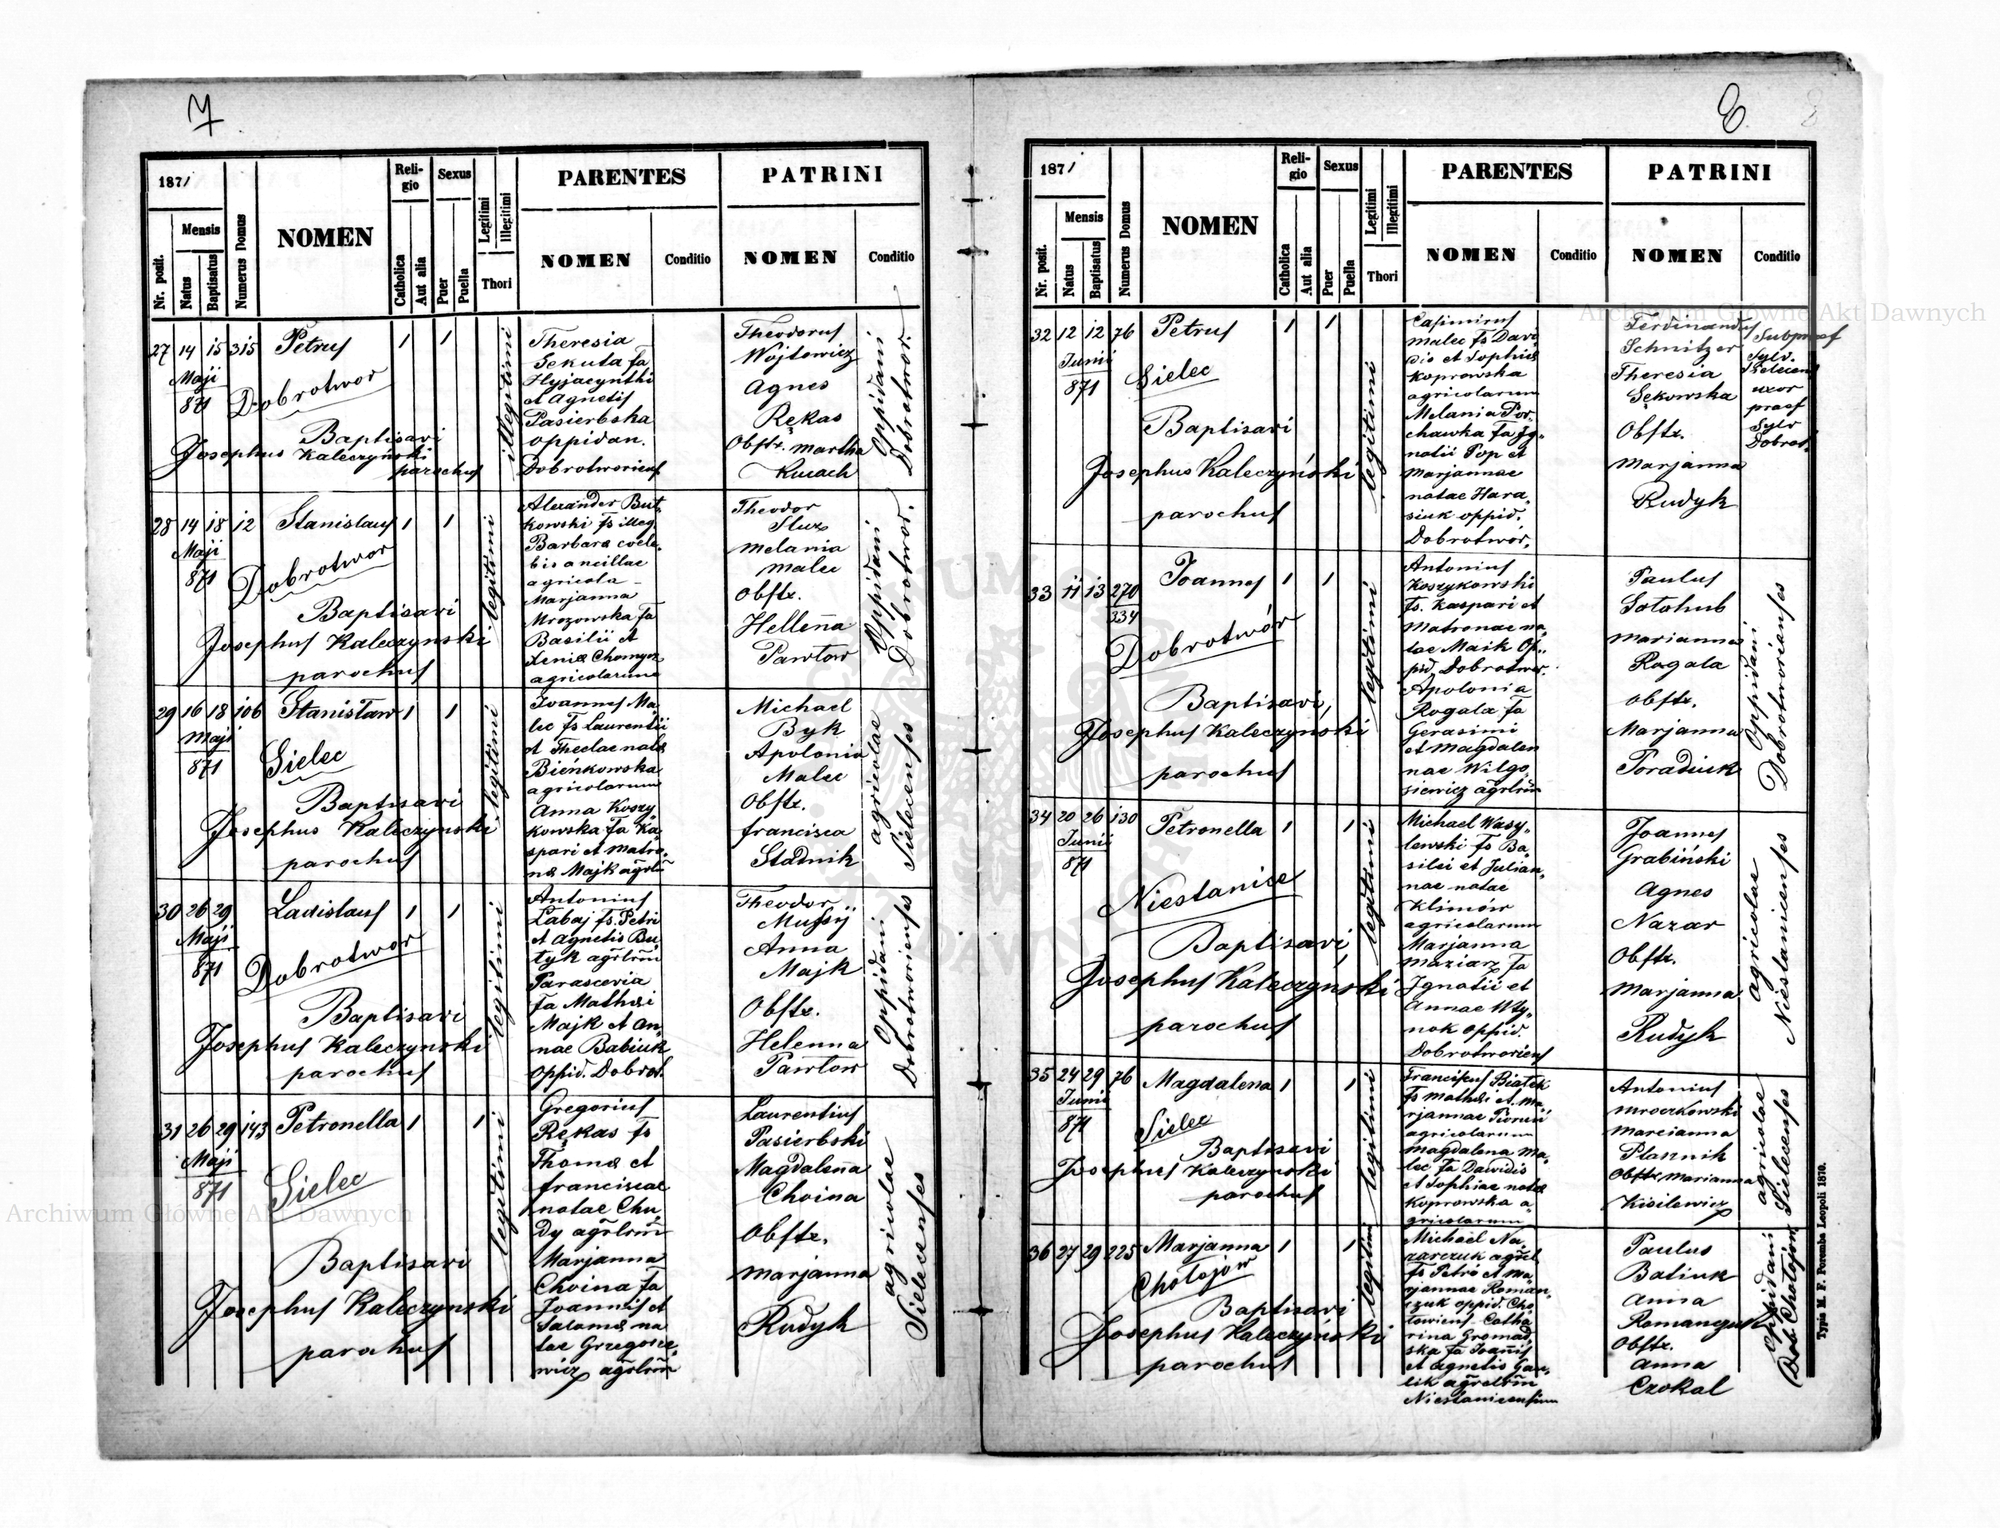 7
1871
Mensis
Nr. posit.
Natus
Baptisatus
Numerus Domus
NOMEN
Religio
Catholica
Aut alia
Sexus
Puer
Puella
Legitimi
Illegitimi
Thori
PARENTES
NOMEN
Conditio
PATRINI
NOMEN
Conditio
27 14 15 315 Petrus 1 1
Maji
871
Dobrotwor
Baptisavi
Josephus Kaleczyński
parochus
illegitimi
Theresia
Sekuta fa
Hyjacynthi
et Agnetis
Pasierbska
oppidan.
Dobrotworiens
Theodorus
Wojtowicz
Agnes
Rękas
Obstr. Martha
Kucach
Oppidani
Dobrotwor.
28 14 18 12 Stanislaus 1 1
Maji
871
Dobrotwor
Baptisavi
Josephus Kaleczynski
parochus
legitimi
Alexander But
kowski fs illeg.
Barbara coele
bis ancillae
agricola
Marjanna
Mrozowska fa
Basilii et
Xenia Chomycz
agricolarum
Theodor
Sluz
Melania
Malec
Obstr.
Hellena
Pawłow
Oppidani
Dobrotwor.
29 16 18 106 Stanisław 1 1
Maji
871
Sielec
Baptisavi
Josephus Kaleczynski
parochus
legitimi
Joannes Ma
lec fs Laurentii
et Theclae nata
Bieńkowska
agricolarum
Anna Koszy
kowska fa Ka
spari et Matro
na Majk agrlm
Michael
Byk
Apolonia
Malec
Obstr.
Francisca
Stadnik
agricolae
Sielecenses
30 26 29 Ladislaus 1 1
Maji
871
Dobrotwor
Baptisavi
Josephus Kaleczynski
parochus
legitimi
Antonius
Labaj fs. Petri
et Agnetis Bu
tyk agrlrm
Parascevia
fa Mathei
Majk et An
nae Babiuk
oppid. Dobrot.
Theodor
Mussij
Anna
Majk
Obstr.
Helenna
Pawłow
Oppidani
Dobrotworienses
31 26 29 143 Petronella 1 1
Maji
871
Sielec
Baptisavi
Josephus Kaleczynski
parochus
legitimi
Gregorius
Rękas fs
Thoma et
Franciscae
natae Chu
dy agrlrm
Marjanna
Choina fa
Joannis et
Saloma na
tae Grzegorze
wicz agrlrm
Laurentius
Pasierbski
Magdalena
Choina
Obstr.
Marjanna
Rudyk
agricolae
Sielecenses
8
1871
Mensis
Nr. posit.
Natus
Baptisatus
Numerus Domus
NOMEN
Religio
Catholica
Aut alia
Sexus
Puer
Puella
Legitimi
Illegitimi
Thori
PARENTES
NOMEN
Conditio
PATRINI
NOMEN
Conditio
32 12 12 76 Petrus 1 1
Junii
871
Sielec
Baptisavi
Josephus Kaleczyński
parochus
legitimi
Casimirus
Malec fs Davi
dis et Sophia
Koprowska
agricolarum
Melania Por
chawka fa Jg
natii Pop et
Marjannae
natae Hara
siuk oppid.
Dobrotwor.
Ferdinandus
Schnitzer
Theresia
Sękowska
Obstr.
Marjanna
Rudyk
Sylv.
uxor
praef
Sylv
Dobrot
33 11 13 270
334
Joannes 1 1
Dobrotwór
Baptisavi,
Josephus Kaleczynski
parochus
legitimi
Antonius
Koszykowski
fs. Kaspari et
Matronae na
tae Maik Op
pid. Dobrotwor.
Apolonia
Rogala fa
Gerasimi
et Magdalen
nae Wilgo
siewicz agrlrm
Paulus
Sotohub
Marianna
Rogala
Obstr.
Marjanna
Poradiuk
Oppidani
Dobrotworienses
34 20 26 130 Petronella 1 1
Junii
871
Niestanice
Baptisavi,
Josephus Kaleczyński
parochus
legitimi
Michael Wasy
lewski fs Ba
silei et Julian
nae natae
Klimów
agricolarum
Marjanna
Maziarz fa
Ignatii et
Annae Wty
nok oppid.
Dobrotworiens
Joannes
Grabiński
Agnes
Nazar
Obstr.
Marjanna
Rudyk
agricolae
Niestanicenses
35 24 29 76 Magdalena 1 1
Junii
871
Sielec
Baptisavi
Josephus Kaleczynski
parochus
legitimi
Franciscus Białek
fs Mathei et Ma
rjannae
agricolarum
Magdalena Ma
lec fa Dawidis
et Sophiae nata
Koprowska a
gricolarum
Antonius
Mroczkowski
Marcianna
Płannik
Obstr. Marianna
Kisilewicz
agricolae
Sielecenses
36 27 29 225 Marjanna 1 1
Chołojów
Baptisavi
Josephus Kaleczyński
parochus
legitimi
Michael Na
zarczuk agrel
fs Petro et Ma
rjannae Roman
czuk oppid. Cho
łowiens Catha
rina Gromad
ska fa Joannis
et Agnetis Gar
lik agrelrm
Niestanicensium
Paulus
Batiuk
Anna
Romanczuk
Obstr.
Anna
Czokal
oppidani
Chołojow
Typis M. F. Poremba Leopoli 1870.
Archiwum Główne Akt Dawnych
Archiwum Główne Akt Dawnych